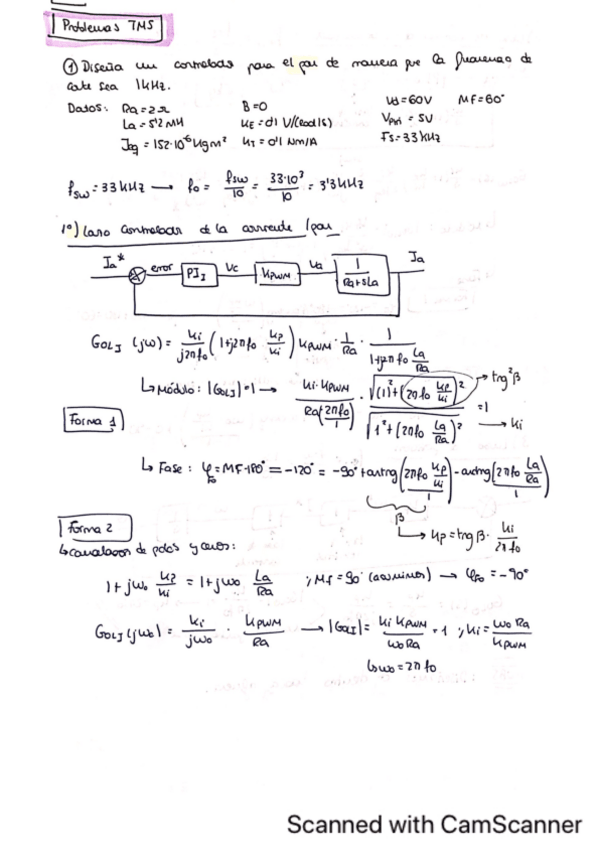 Problemas TMS
① Diseña un controlador para el par de manera que la frecuencia de
corte sea 1kHz.
Datos: Ra=2Ω B=0 Vd=60V MF=60°
La=5'2 mH KE=0'1 V/(rad/s) Vtri=5V
Jeq=152·10⁻⁶ kgm² KT=0'1 Nm/A Fs=33kHz
fsw=33kHz → f0= fsw/10 = 33·10³/10 = 3'3kHz
1º) Lazo controlador de la corriente/par
Ia* error PI_I Vc KPWM Va 1/(Ra+sLa) Ia
G_OLI(jω)= ki/(j2πf0) (1+j2πf0 kp/ki) KPWM · 1/Ra · 1/(1+j2πf0 La/Ra)
↳ Módulo: |G_OLI|=1 → ki·KPWM/(Ra(2πf0)/1) · √((1)²+(2πf0 kp/ki)²)/√(1²+(2πf0 La/Ra)²) =1 → tng²β → ki
Forma 1
↳ Fase: φf0=MF-180°=-120°=-90°+arctng(2πf0 kp/ki /1)-arctng(2πf0 La/Ra /1)
β
↳ kp=tngβ· ki/2πf0
Forma 2
↳ cancelación de polos y ceros:
1+jω0 kp/ki = 1+jω0 La/Ra ; MF=90° (asumimos) → φf0=-90°
G_OLI(jω0)= ki/jω0 · KPWM/Ra → |G_OLI|= ki KPWM/ω0Ra = 1 ; ki= ω0 Ra/KPWM
↳ ω0=2πf0
Scanned with CamScanner